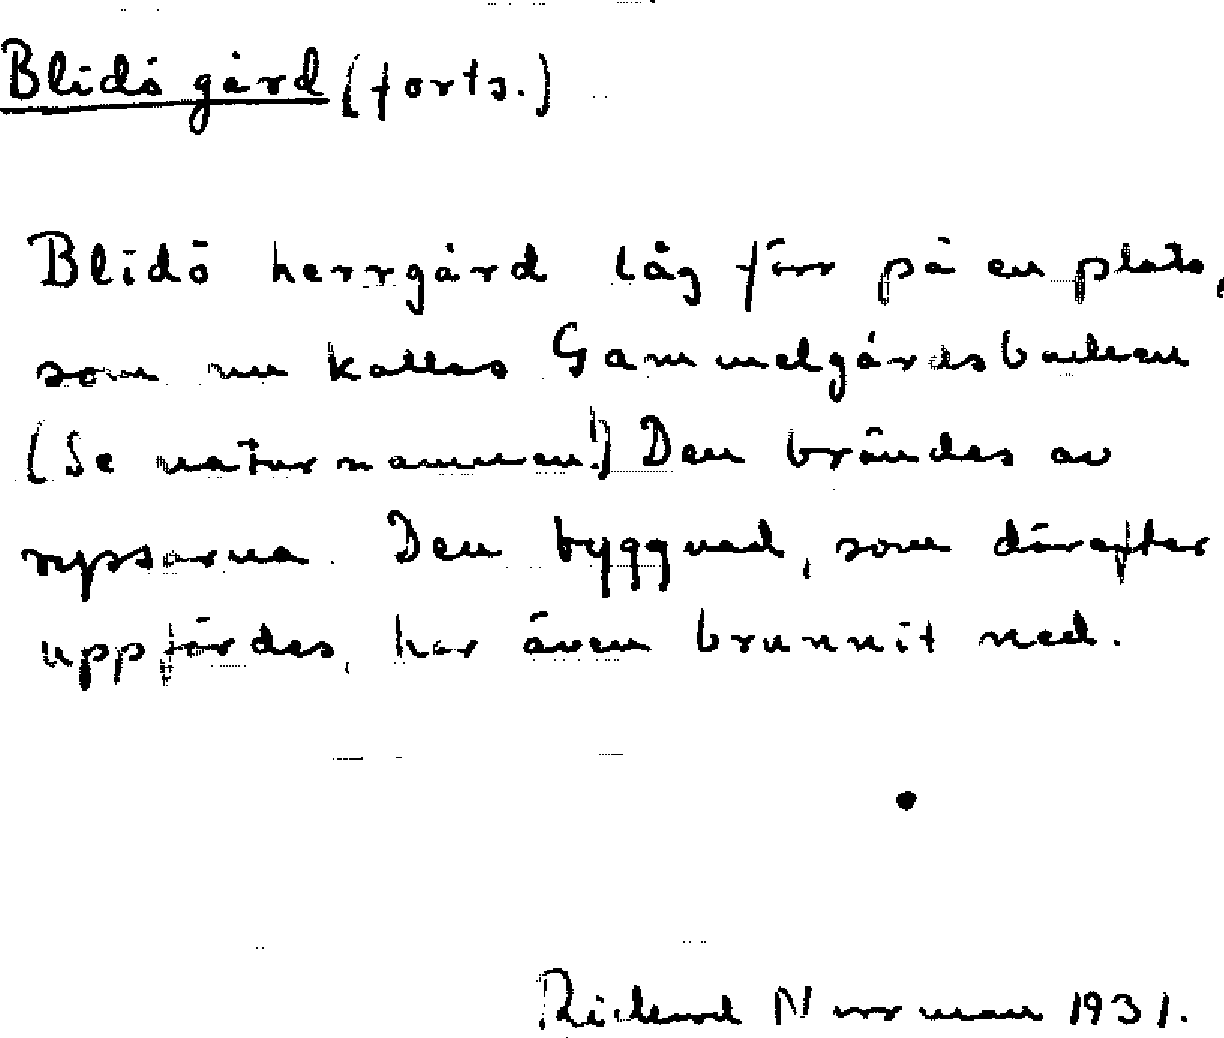 Blidö gård (forts.)
Blidö herrgård låg förr på en plats,
som nu kallas Gammelgårdsbacken
(Se naturnamnen!) Den brändes av
ryssarna. Den byggnad, som därefter
uppfördes, har även brunnit ned.
Rickard Norrman 1931.